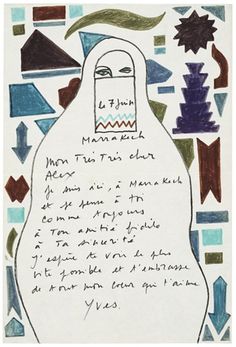 le 7 Juin
Marrakech
mon Très Très cher
Alex
je suis ici, à Marrakech
et je pense à toi
comme toujours
à Ton amitié fidèle
à Ta sincérité
j'espère te voir le plus
vite possible et t'embrasse
de tout mon coeur qui t'aime
Yves.